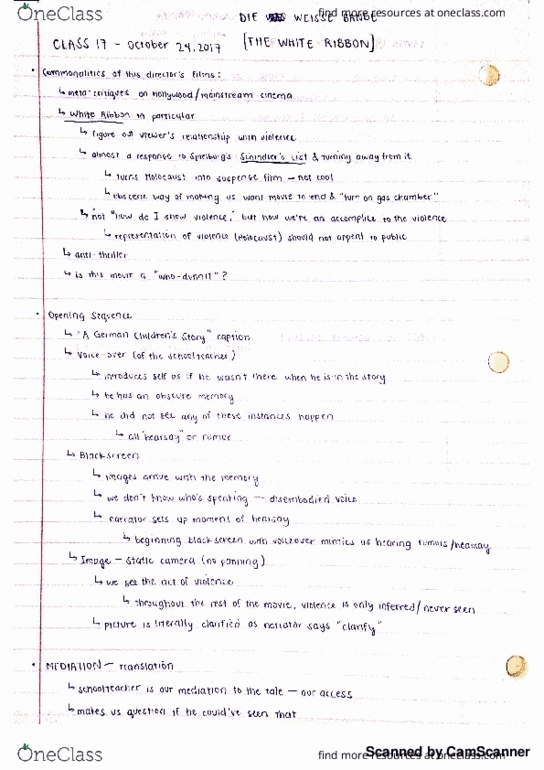 OneClass
find more resources at oneclass.com
DIE WEISSE BANDE
CLASS 17 - October 24, 2017 [THE WHITE RIBBON]
• Commonalities of this director's films:
↳ meta-critiques on Hollywood/mainstream cinema
↳ White Ribbon in particular
↳ figure out viewer's relationship with violence
↳ almost a response to Speilburg's Schindler's List & turning away from it
↳ turns Holocaust into suspense film — not cool
↳ obscene way of making us want movie to end & "turn on gas chamber"
↳ not "how do I show violence," but how we're an accomplice to the violence
↳ representation of violence (Holocaust) should not appeal to public
↳ anti-thriller
↳ is this movie a "who-dunnit"?
• Opening Sequence
↳ "A German Children's Story" caption
↳ Voice over (of the schoolteacher)
↳ introduces self as if he wasn't there when he is in the story
↳ he has an obscure memory
↳ he did not see any of these instances happen
↳ all "hearsay" or rumor
↳ Blackscreen
↳ images arrive with the memory
↳ we don't know who's speaking — disembodied voice
↳ narrator sets up moment of hearsay
↳ beginning blackscreen with voiceover mimics us hearing rumors/hearsay
↳ Image — static camera (no panning)
↳ we see the act of violence
↳ throughout the rest of the movie, violence is only inferred/never seen
↳ picture is literally clarified as narrator says "clarify"
• MEDIATION — translation
↳ schoolteacher is our mediation to the tale — our access
↳ makes us question if he could've seen that
OneClass
find more resources at oneclass.com
Scanned by CamScanner